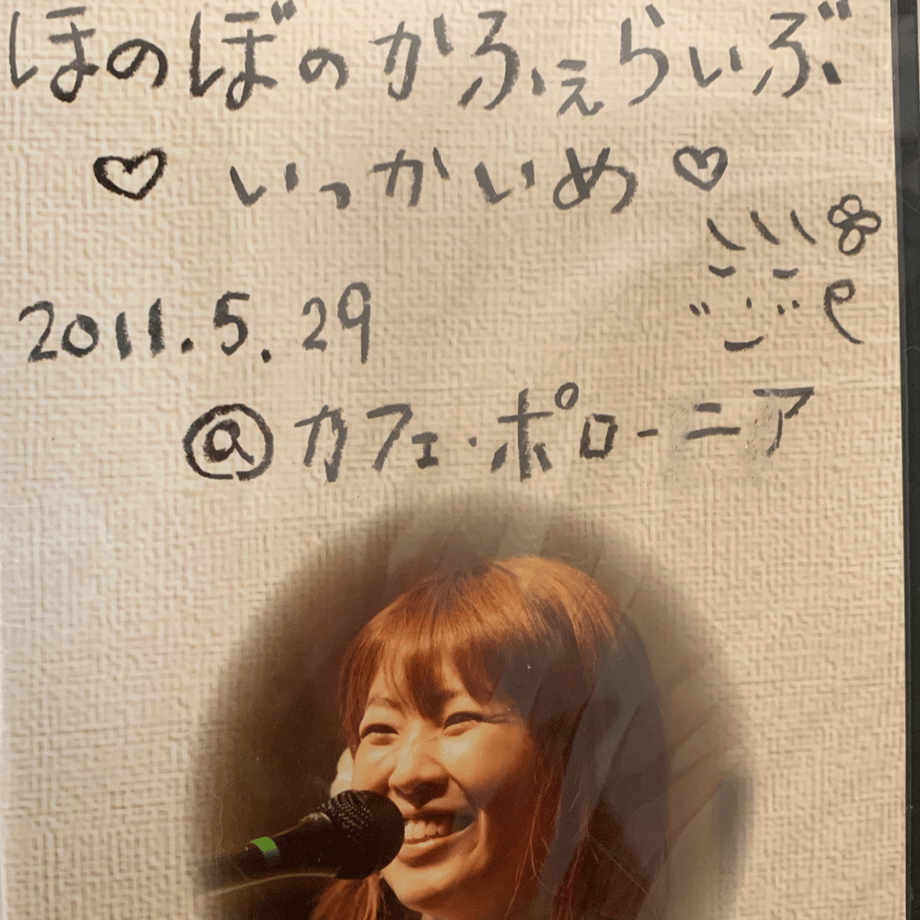 ほのぼのかふぇらいぶ
♡いっかいめ♡
2011.5.29
@カフェ・ポローニア